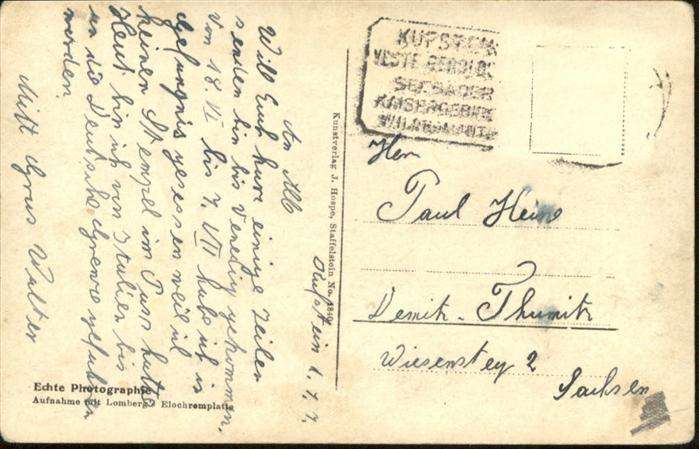 Kufstein 1. 7. 7,
An Alle
Will Euch kurz einige Zeilen
senden bin bis Venedig gekommen,
von 18. VI bis 7. VII habe ich in
gefängnis gesessen weil ich
keinen Stempel im Pass hatte
Heut bin ich von Italien bis
an die Deutsche Grenze gefahren
worden
Mitt Grus Walter
Echte Photographie
Aufnahme mit Lomberg's Elochromplatte
Kunstverlag J. Hospe, Staffelstein No.
KUFSTEIN
VESTE GEROLDS
SEEBÄDER
KAISERGEBIRGE
WILDROMANTIK
Herr
Paul Heine
Demitz-Thumitz
Wiesensteg 2
Sachsen